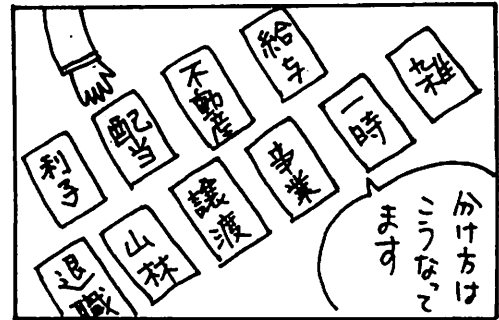 利子
配当
不動産
給与
退職
山林
譲渡
事業
一時
雑
分け方は
こうなって
ます